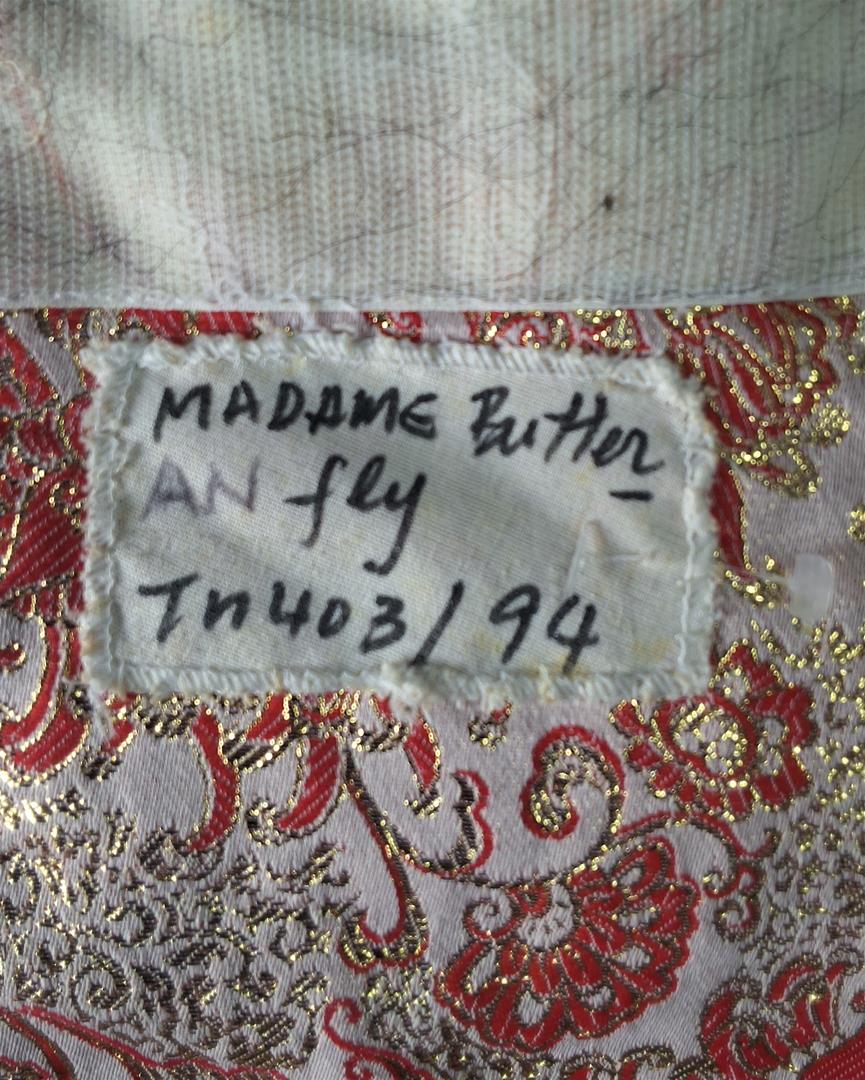 MADAME Butter
AN fly
Tn403/94